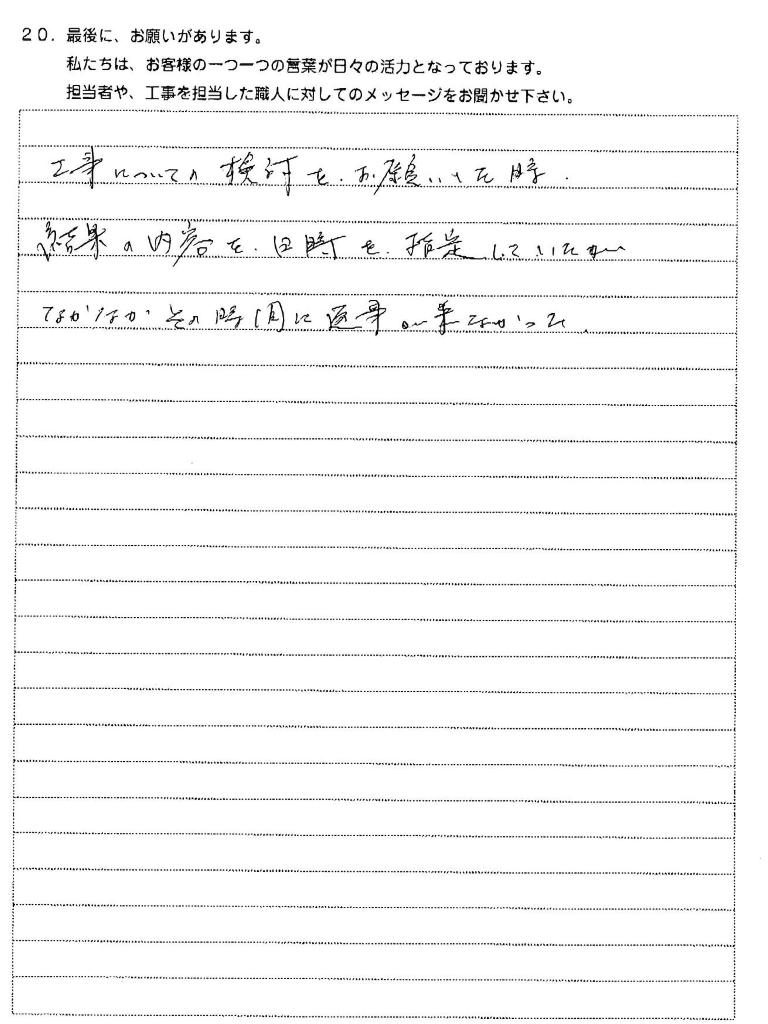 20. 最後に、お願いがあります。
私たちは、お客様の一つ一つの言葉が日々の活力となっております。
担当者や、工事を担当した職人に対してのメッセージをお聞かせ下さい。
工事についての検討を、お願いした時、
結果の内容を、日時を、指定していたが
なかなかその時間に返事が来なかった。